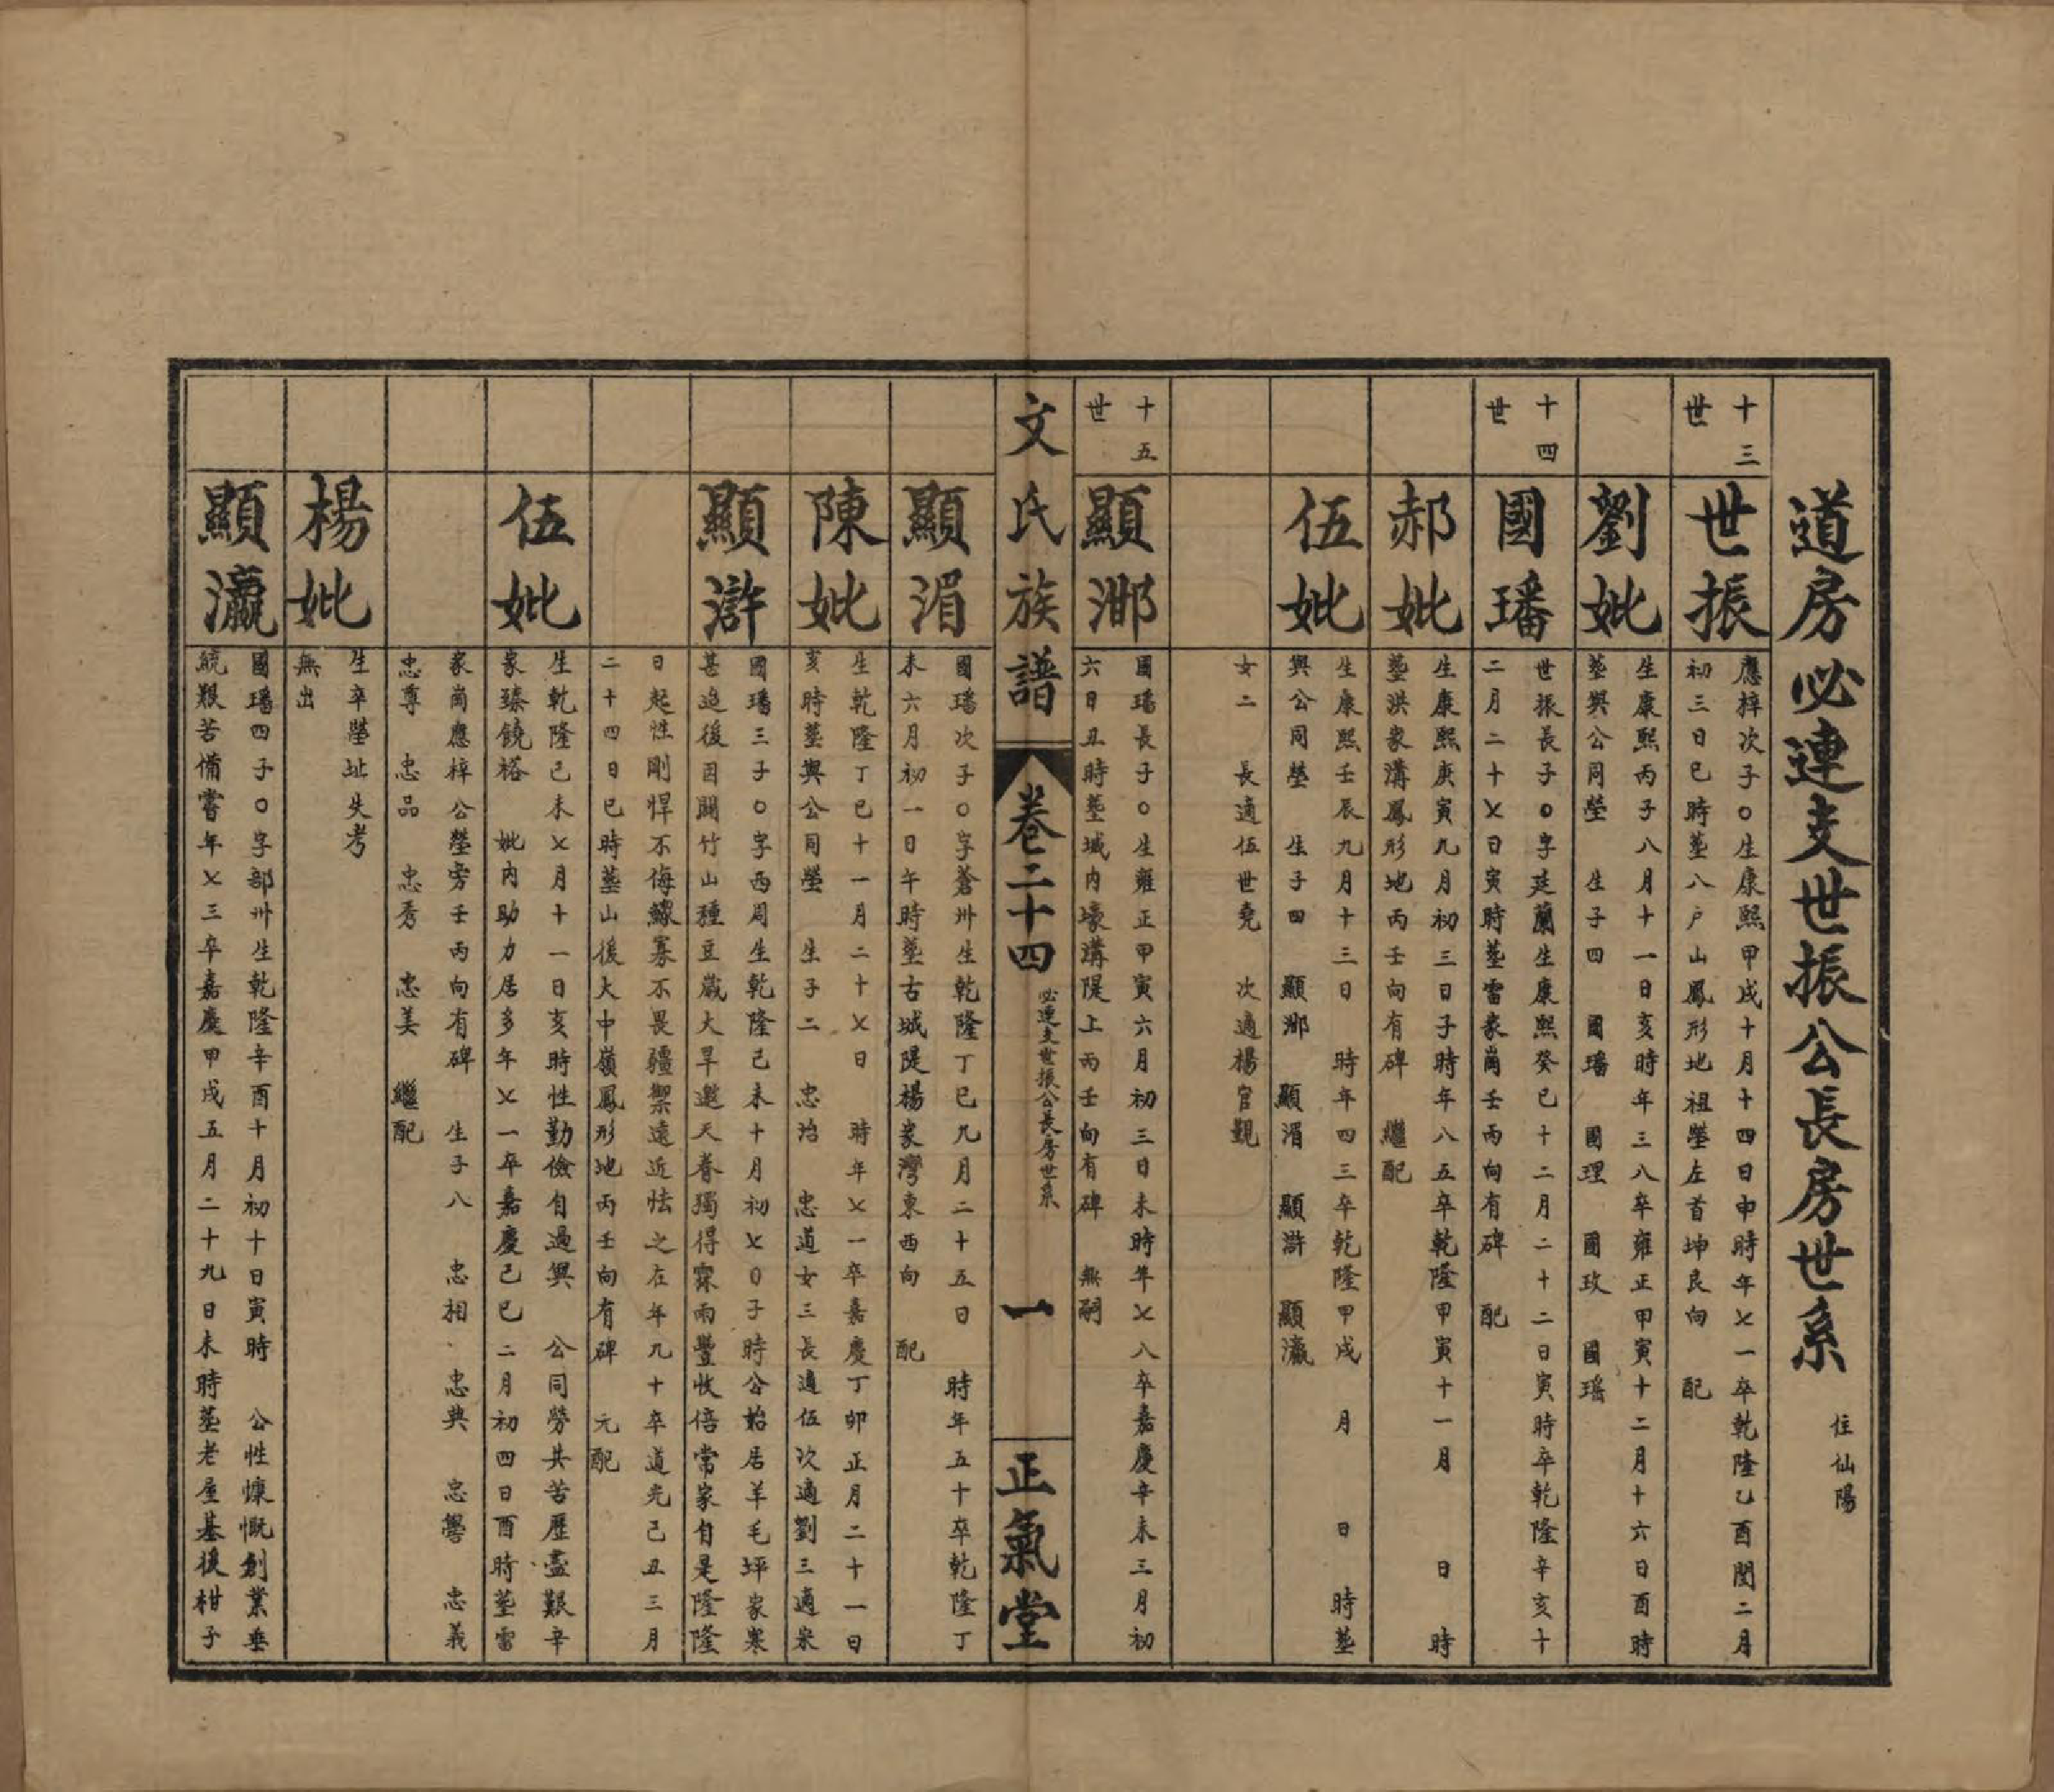 道房必連支世振公長房世系
住仙陽
十三
世
世振
應梓次子○生康熙甲戌十月十四日申時年七一卒乾隆乙酉閏二月
初三日巳時塟八户山鳳形地祖塋左首坤艮向 配
劉妣
生康熙丙子八月十一日亥時年三八卒雍正甲寅十二月十六日酉時
塟與公同塋 生子四 國璠 國理 國玫 國瑤
十四
世
國璠
世振長子○字廷蘭生康熙癸巳十二月二十二日寅時卒乾隆辛亥十
二月二十七日寅時塟雷家崗壬丙向有碑 配
郝妣
生康熙庚寅九月初三日子時年八五卒乾隆甲寅十一月 日 時
塟洪家溝鳳形地丙壬向有碑 繼配
伍妣
生康熙壬辰九月十三日 時年四三卒乾隆甲戌 月 日 時塟
與公同塋 生子四 顯瀄 顯湄 顯滸 顯瀛
女二 長適伍世堯 次適楊官覲
十五
世
顯瀄
國璠長子○生雍正甲寅六月初三日未時年七八卒嘉慶辛未三月初
六日丑時塟城内壕溝隄上丙壬向有碑 無嗣
文氏族譜
卷二十四
必連支世振公長房世系
一
正氣堂
顯湄
國璠次子○字蒼卅生乾隆丁巳九月二十五日 時年五十卒乾隆丁
未六月初一日午時塟古城隄楊家灣東西向 配
陳妣
生乾隆丁巳十一月二十七日 時年七一卒嘉慶丁卯正月二十一日
亥時塟與公同塋 生子二 忠治 忠道女三長適伍次適劉三適米
顯滸
國璠三子○字西周生乾隆己未十月初七日子時公始居羊毛坪家寒
甚追後因闢竹山種豆歲大旱邀天眷獨得霖雨豐收倍常家自是隆隆
日起性剛悍不侮鰥寡不畏疆禦遠近怯之在年九十卒道光己丑三月
二十四日巳時塟山後大中嶺鳳形地丙壬向有碑 元配
伍妣
生乾隆己未七月十一日亥時性勤儉自過興 公同勞共苦歷盡艱辛
家臻饒裕 妣内助力居多年七一卒嘉慶己巳二月初四日酉時塟雷
家崗應梓公塋旁壬丙向有碑 生子八 忠相 忠典 忠學 忠義
忠尊 忠品 忠秀 忠美 繼配
楊妣
生卒塋址失考
無出
顯瀛
國璠四子○字部卅生乾隆辛酉十月初十日寅時 公性慷慨創業垂
統艱苦備嘗年七三卒嘉慶甲戌五月二十九日未時塟老屋基後柑子